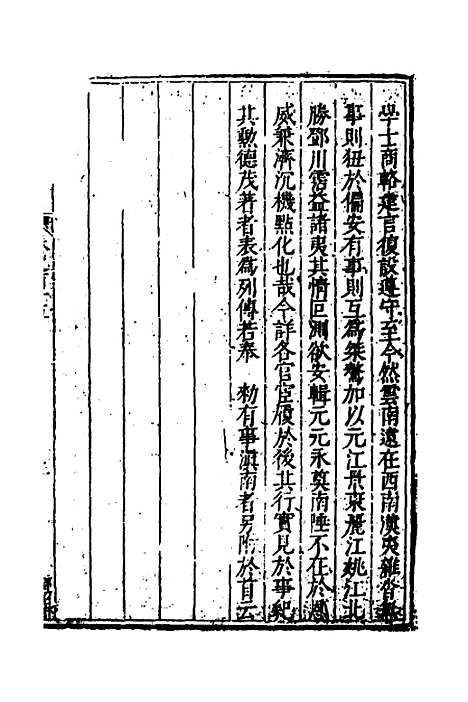 學士商輅建言復設遵守至今然雲南遠在西南漢夷雜沓無
事則狃於偏安有事則互為桀驁加以元江景東麗江姚江北
勝鄧川霑益諸夷其情叵測欲安輯元元永奠南陲不在於恩
威兼濟沉機默化也哉今詳各官宦履於後其行實見於事紀
其勳德茂著者表為列傳若奉 勑有事滇南者另附於首云